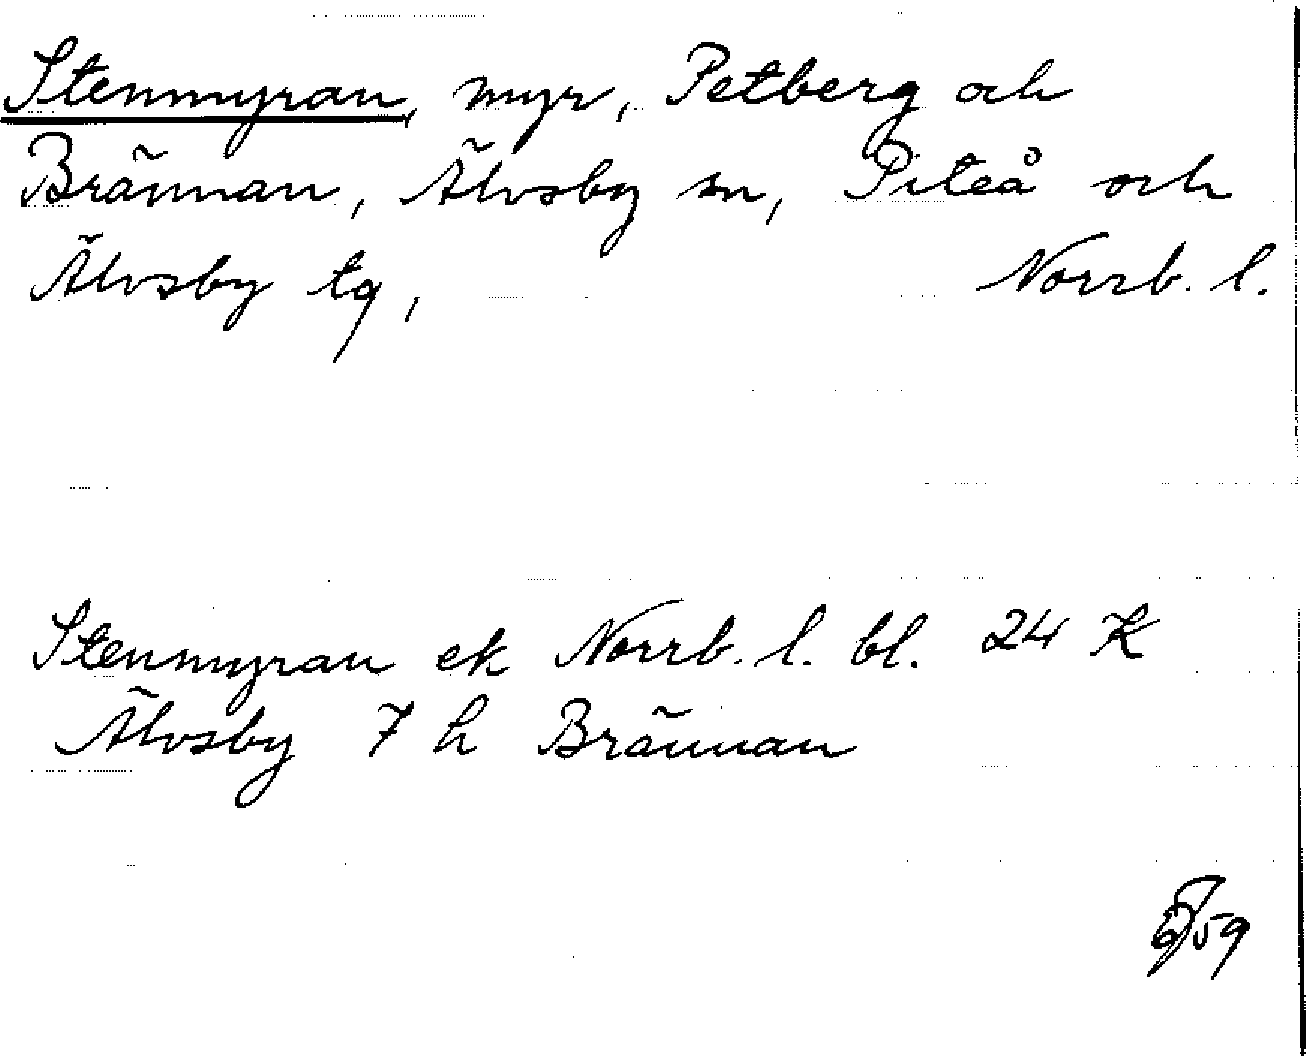 Stenmyran, myr, Petberg och
Brännan, Älvsby sn, Piteå och
Älvsby tg, Norrb. l.
Stenmyran ek Norrb. l. bl. 24 K
Älvsby 7 h Brännan
59